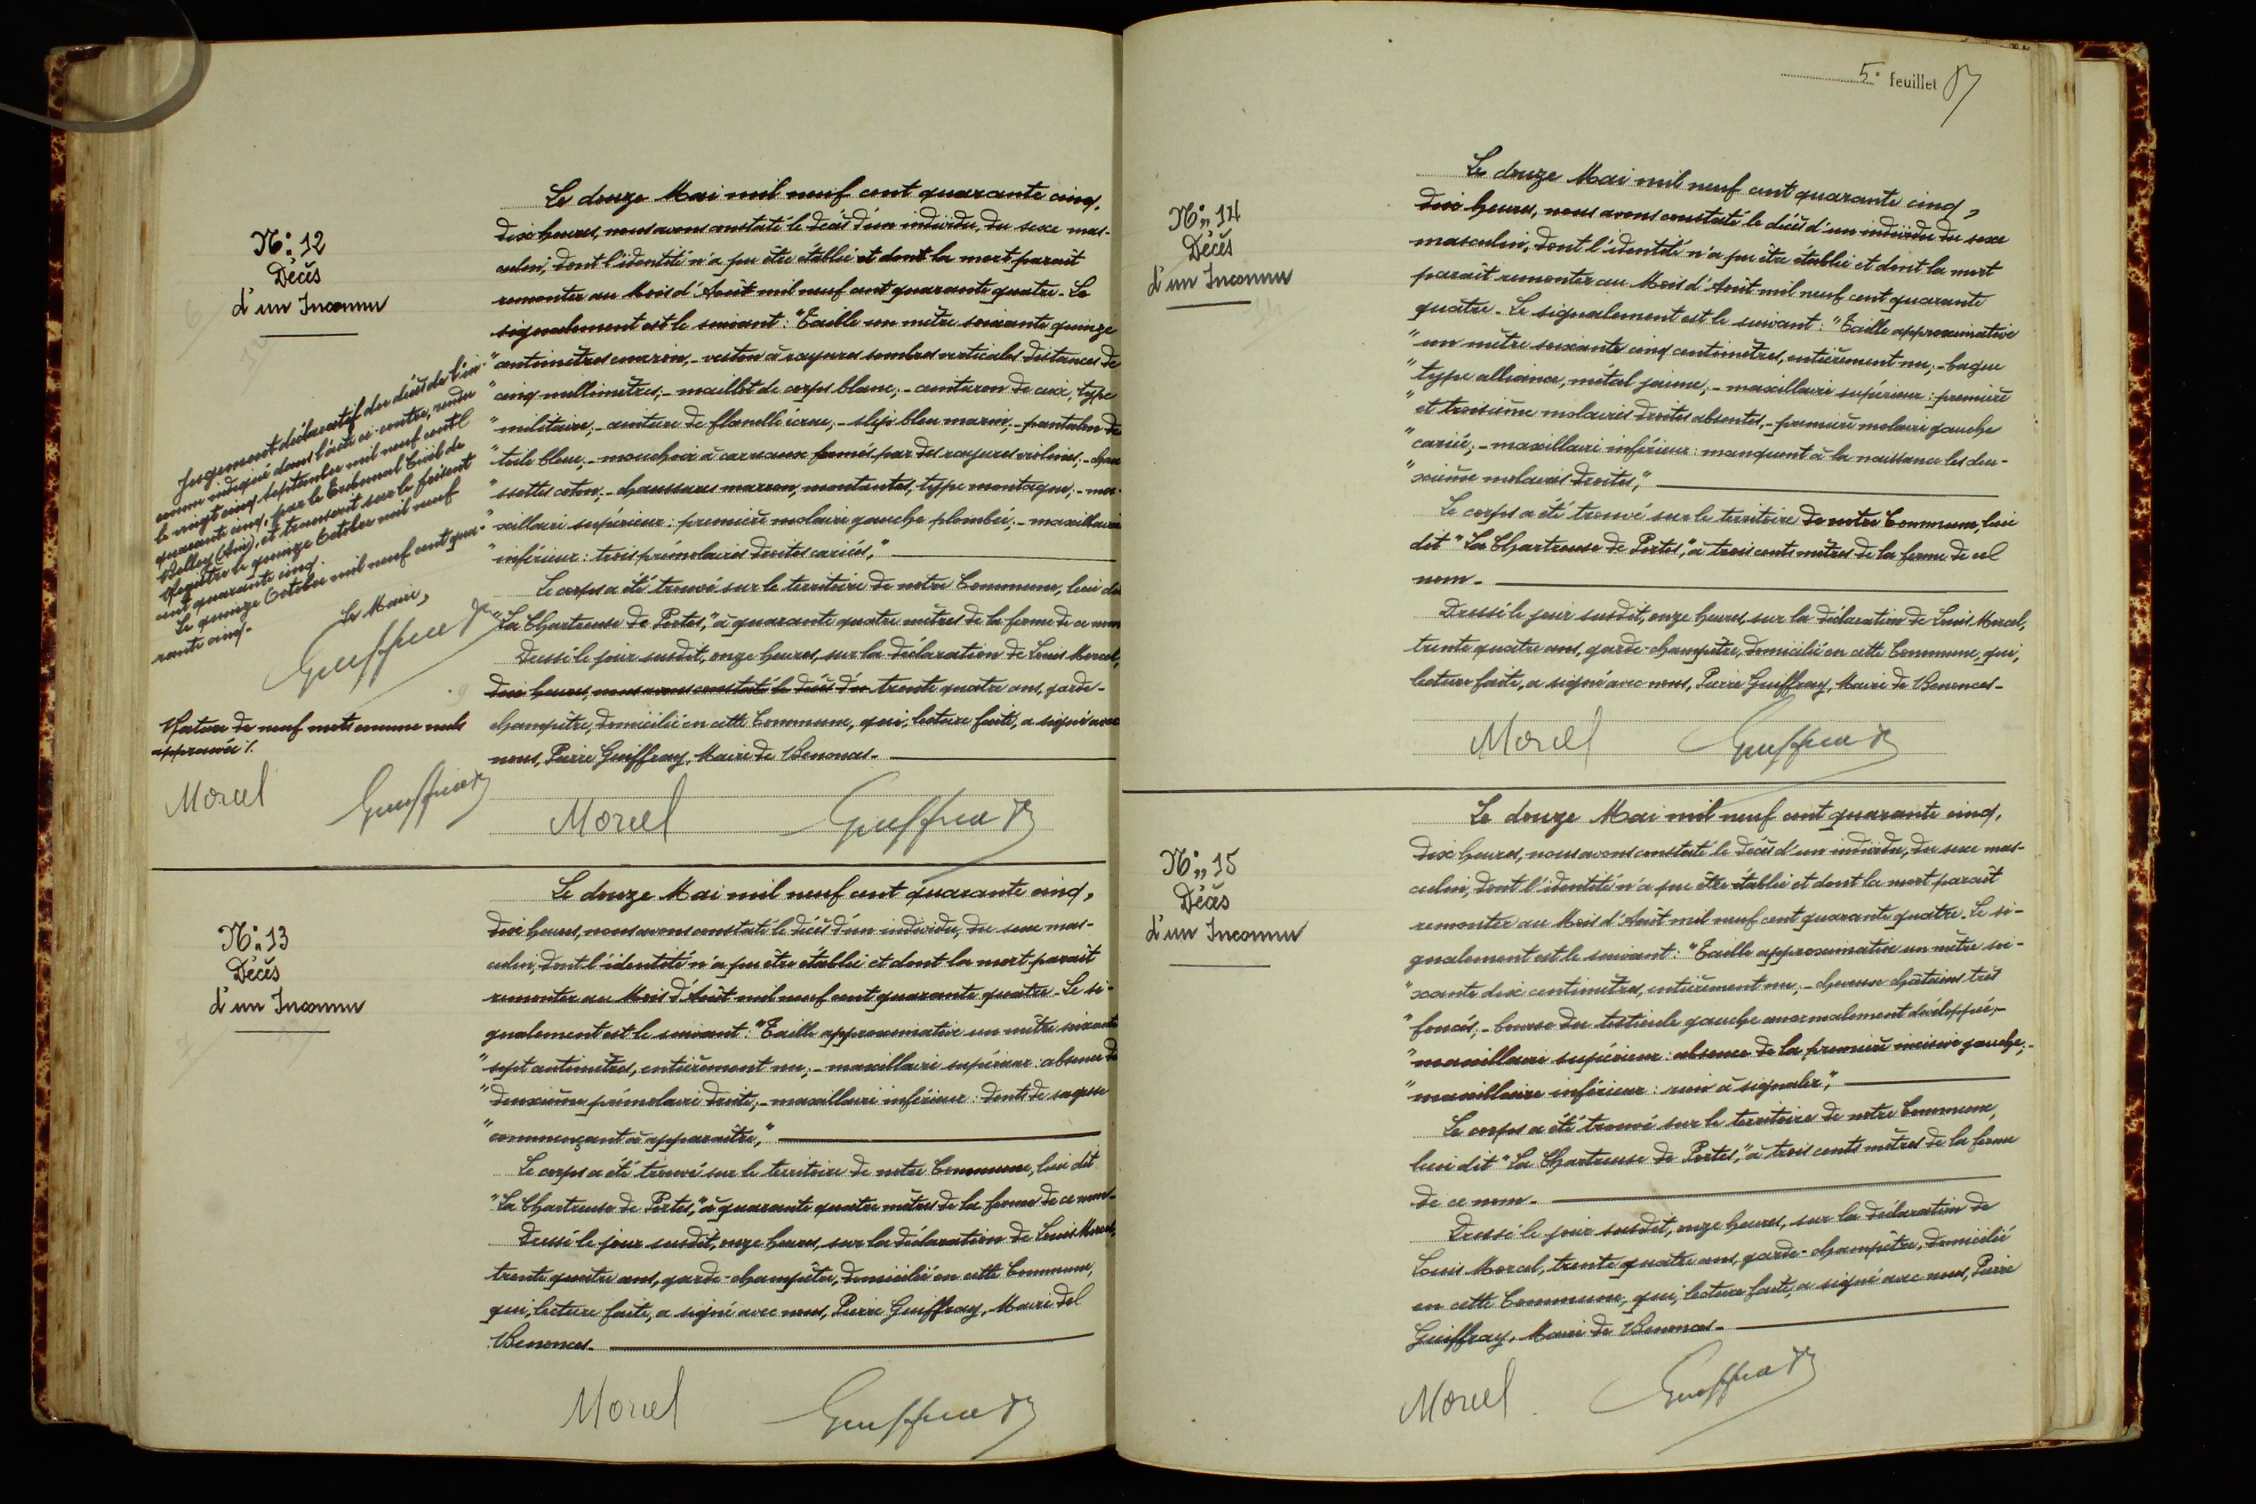 N° 12
Décès
d'un Inconnu
Le douze Mai mil neuf cent quarante cinq,
dix heures, nous avons constaté le décès d'un individu, du sexe mas-
culin, dont l'identité n'a pu être établie et dont la mort paraît
remonter au Mois d'Août mil neuf cent quarante quatre. Le
signalement est le suivant: "Taille un mètre soixante quinze
"centimètres environ,- veston à rayures sombres verticales distances de
"cinq millimètres,- maillot de corps blanc,- ceinturon de cuir, type
"militaire,- ceinture de flanelle écrue,- slip bleu marin,- pantalon de
"toile bleue,- mouchoir à carreaux formés par des rayures violines,- chau
"ssettes coton,- chaussures marron, montantes, type montagne,- ma-
"xillaire supérieur: première molaire gauche plombée,- maxillaire
"inférieur: trois prémolaires droites cariées,"
Le corps a été trouvé sur le territoire de notre Commune, lieu dit
"La Chartreuse de Portes," à quarante quatre mètres de la ferme de ce nom
Dressé le jour susdit, onze heures, sur la déclaration de Louis Morcel,
dix heures, nous avons constaté le décès d'un trente quatre ans, garde-
champêtre, domicilié en cette Commune, qui, lecture faite, a signé avec
nous, Pierre Guiffray, Maire de Benonces.
Morcel Guiffray
Jugement déclaratif du décès de l'in-
connu indiqué dans l'acte ci-contre, rendu
le vingt cinq Septembre mil neuf cent
quarante cinq, par le Tribunal Civil de
Belley (Ain), et transcrit sur le présent
Registre le quinze Octobre mil neuf
cent quarante cinq.
Le quinze Octobre mil neuf cent qua-
rante cinq.
Le Maire,
Guiffray
Rature de neuf mots comme nuls
approuvée %.
Morcel Guiffray
N° 13
Décès
d'un Inconnu
Le douze Mai mil neuf cent quarante cinq,
dix heures, nous avons constaté le décès d'un individu, du sexe mas-
culin, dont l'identité n'a pu être établie et dont la mort paraît
remonter au Mois d'Août mil neuf cent quarante quatre. Le si-
gnalement est le suivant: "Taille approximative un mètre soixante
"sept centimètres, entièrement nu;- maxillaire supérieur: absence de
"deuxième prémolaire droite;- maxillaire inférieur: dents de sagesse
"commençant à apparaître,"
Le corps a été trouvé sur le territoire de notre Commune, lieu dit
"La Chartreuse de Portes," à quarante quatre mètres de la ferme de ce nom.
Dressé le jour susdit, onze heures, sur la déclaration de Louis Morcel,
trente quatre ans, garde-champêtre, domicilié en cette Commune,
qui, lecture faite, a signé avec nous, Pierre Guiffray, Maire de
Benonces.
Morcel Guiffray
5e feuillet
N° 14
Décès
d'un Inconnu
Le douze Mai mil neuf cent quarante cinq,
dix heures, nous avons constaté le décès d'un individu du sexe
masculin, dont l'identité n'a pu être établie et dont la mort
paraît remonter au Mois d'Août mil neuf cent quarante
quatre. Le signalement est le suivant: "Taille approximative
"un mètre soixante cinq centimètres, entièrement nu;- bague
"type alliance, métal jaune;- maxillaire supérieur: première
"et troisième molaires droites absentes,- première molaire gauche
"cariée;- maxillaire inférieur: manquent à la naissance les deu-
"xième molaires droites,"
Le corps a été trouvé sur le territoire de notre Commune, lieu
dit "La Chartreuse de Portes," à trois cents mètres de la ferme de cel
nom.
Dressé le jour susdit, onze heures, sur la déclaration de Louis Morcel,
trente quatre ans, garde-champêtre, domicilié en cette Commune, qui,
lecture faite, a signé avec nous, Pierre Guiffray, Maire de Benonces.
Morcel Guiffray
N° 15
Décès
d'un Inconnu
Le douze Mai mil neuf cent quarante cinq,
dix heures, nous avons constaté le décès d'un individu, du sexe mas-
culin, dont l'identité n'a pu être établie et dont la mort paraît
remonter au Mois d'Août mil neuf cent quarante quatre. Le si-
gnalement est le suivant: "Taille approximative un mètre soi-
"xante dix centimètres, entièrement nu;- cheveux châtains très
"foncés,- bourse du testicule gauche anormalement développée,-
"maxillaire supérieur: absence de la première incisive gauche;-
"maxillaire inférieur: rien à signaler,"
Le corps a été trouvé sur le territoire de notre Commune,
lieu dit "La Chartreuse de Portes," à trois cents mètres de la ferme
de ce nom.
Dressé le jour susdit, onze heures, sur la déclaration de
Louis Morcel, trente quatre ans, garde-champêtre, domicilié
en cette Commune, qui, lecture faite, a signé avec nous, Pierre
Guiffray, Maire de Benonces.
Morcel Guiffray